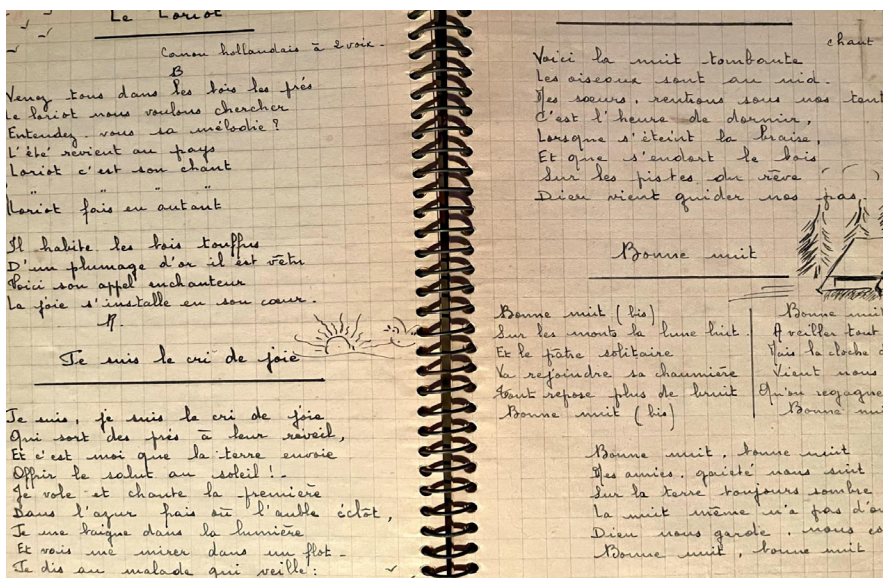 Le Loriot
Canon hollandais à 2 voix.
B
Venez tous dans les bois les prés
Le loriot nous voulons chercher
Entendez-vous sa mélodie ?
L'été revient au pays
Loriot c'est son chant
" " " "
Loriot fais en autant
Il habite les bois touffus
D'un plumage d'or il est vêtu
Voici son appel enchanteur
La joie s'installe en son cœur.
Je suis le cri de joie
Je suis, je suis le cri de joie
Qui sort des prés à leur réveil,
Et c'est moi que la terre envoie
Offrir le salut au soleil !
Je vole et chante la première
Dans l'azur frais où l'aube éclôt,
Je me baigne dans la lumière
Et vais me mirer dans un flot.
Je dis au malade qui veille :
chant
Voici la nuit tombante
Les oiseaux sont au nid.
Mes sœurs, rentrons sous nos tent
C'est l'heure de dormir,
Lorsque s'éteint la braise,
Et que s'endort le bois
Sur les pistes du rêve
Dieu vient guider nos pas
Bonne nuit
Bonne nuit (bis)
Sur les monts la lune luit
Et le pâtre solitaire
Va rejoindre sa chaumière
Tout repose plus de bruit
Bonne nuit (bis)
Bonne nuit
A veiller tout
Mais la cloche
Vient nous
Qu'on regagne
Bonne nui
Bonne nuit, bonne nuit
Mes amies, gaieté nous suit
Sur la terre toujours sombre
La nuit même n'a pas d'o
Dieu nous garde, nous es
Bonne nuit, bonne nuit